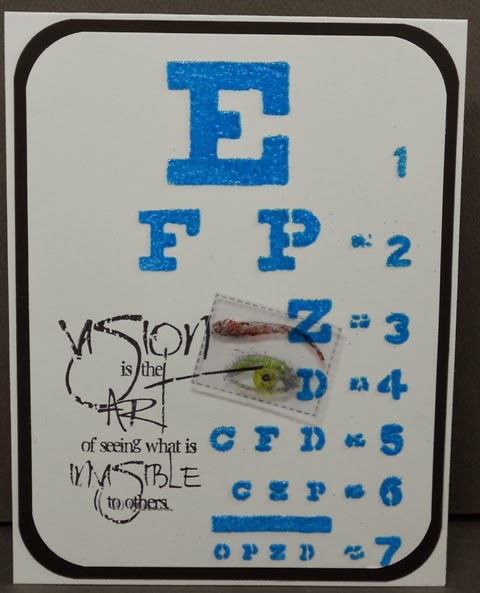 E
1
F P = 2
Z = 3
D = 4
VISION
is the
ART
of seeing what is
INVISIBLE
to others.
C F D = 5
C Z P = 6
O P Z D = 7